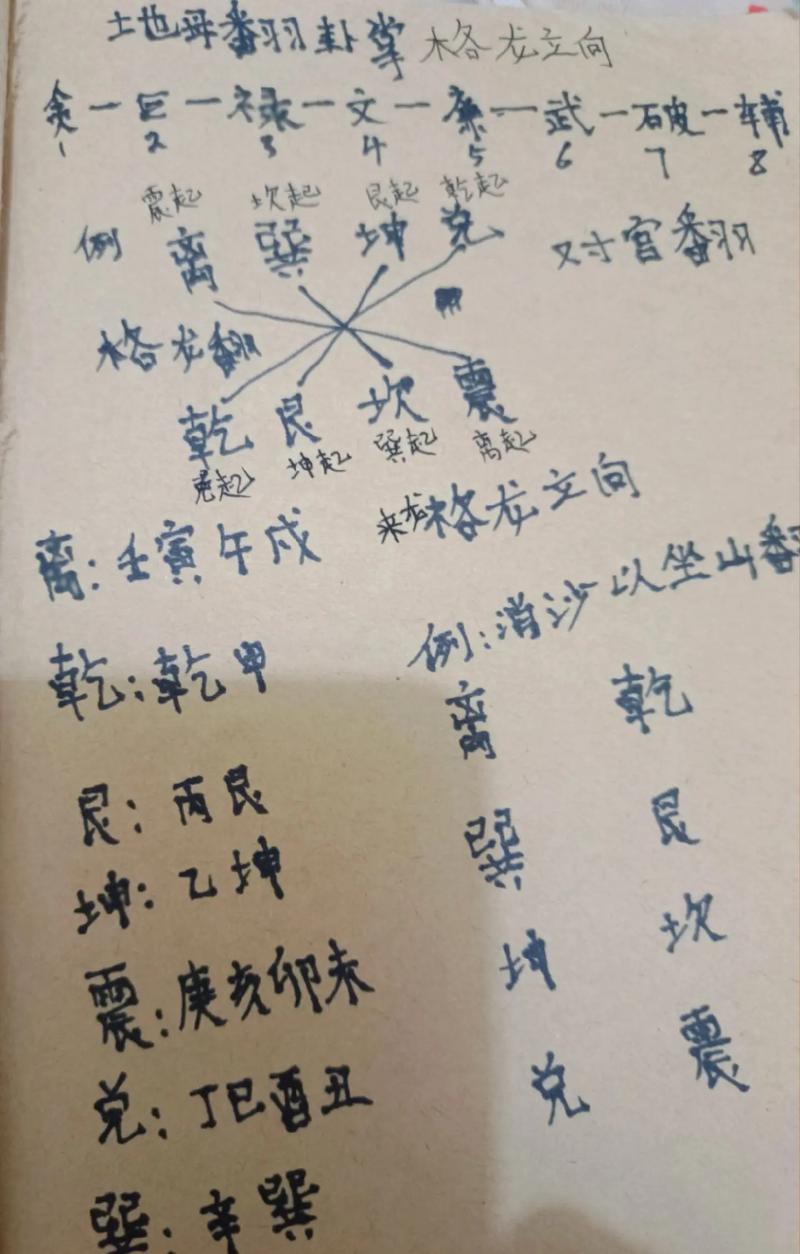 土地母翻卦掌 格龙立向
贪一巨一禄一文一廉一武一破一辅
1 2 3 4 5 6 7 8
震起 坎起 艮起 乾起
例 离 巽 坤 兑 对宫翻
格龙翻
乾 艮 坎 震
兑起 坤起 巽起 离起
来龙格龙立向
离:壬寅午戌
例:消沙以坐山翻
乾:乾甲
离 乾
艮:丙艮
巽 艮
坤:乙坤
坤 坎
震:庚亥卯未
兑 震
兑:丁巳酉丑
巽:辛巽